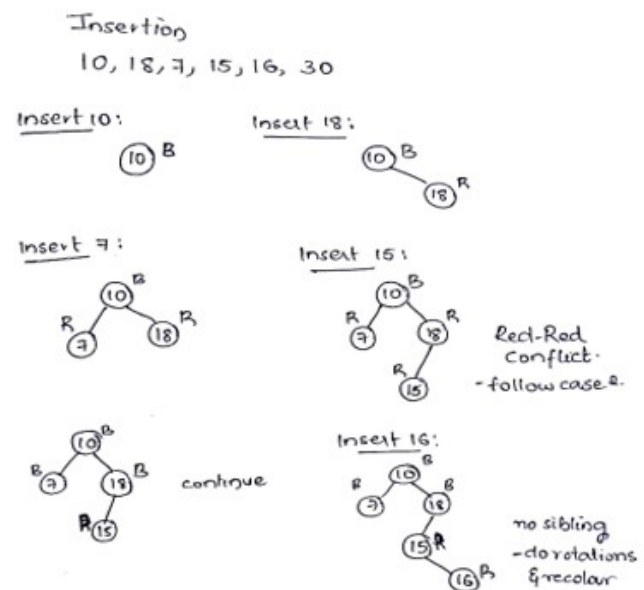 Insertion
10, 18, 7, 15, 16, 30
Insert 10:
10 B
Insert 18:
10 B
18 R
Insert 7:
10 B
R 7
18 R
Insert 15:
10 B
R 7
18 R
R 15
Red-Red
Conflict.
- follow case 2.
10 B
B 7
18 B
R 15
continue
Insert 16:
10 B
B 7
18 B
15 R
16 R
no sibling
- do rotations
& recolour